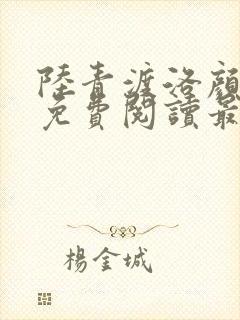 陸青漉洛顏
免費閱讀最
楊金城